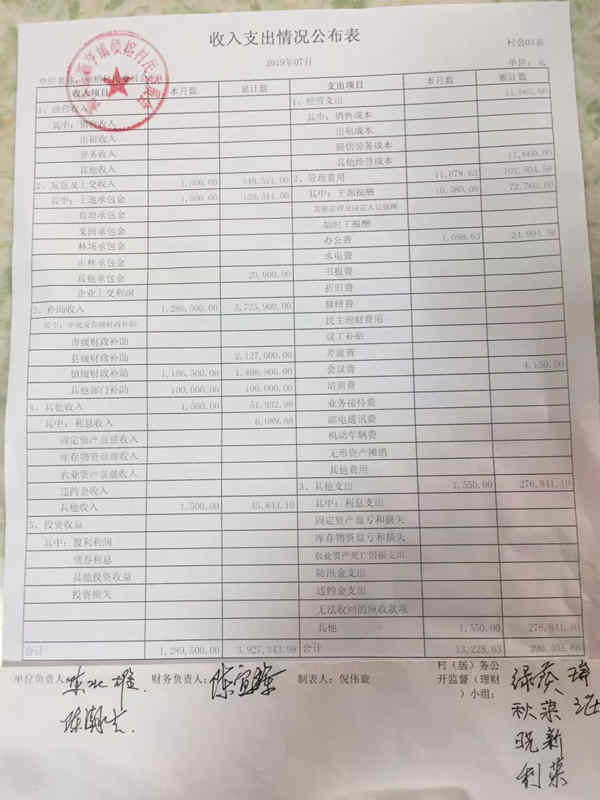 收入支出情况公布表
村会03表
2019年07月
单位：元
收入项目 本月数 累计数 支出项目 本月数 累计数
1、经营收入 1、经营支出
其中：销售收入 其中：销售成本
出租收入 出租成本
劳务收入 提供劳务成本
其他收入 其他经营成本
2、发包及上交收入 2、管理费用 11,678.63
其中：土地承包金 其中：干部报酬 10,580.00 72,760.00
鱼塘承包金
果园承包金 临时工报酬
林场承包金 办公费 1,098.63 24,994.58
山林承包金 水电费
其他承包金 20,000.00 书报费
企业上交利润 折旧费
3、补助收入 1,286,500.00 3,725,900.00 修缮费
民主理财费用
市级财政补助 误工补贴
县级财政补助 2,127,000.00 差旅费
镇级财政补助 1,186,500.00 1,498,900.00 会议费 4,150.00
其他部门补助 100,000.00 100,000.00 培训费
4、其他收入 1,500.00 51,932.98 业务接待费
其中：利息收入 6,089.88 邮电通讯费
固定资产盘盈收入 机动车辆费
库存物资盘盈收入 无形资产摊销
农业资产盘盈收入 其他费用
违约金收入 3、其他支出 1,550.00 276,841.10
其他收入 1,500.00 45,843.10 其中：利息支出
5、投资收益 固定资产盘亏和损失
其中：股利利润 库存物资盘亏和损失
债券利息 农业资产死亡毁损支出
其他投资收益 防汛金支出
投资损失 违约金支出
无法收回的应收款项
其他 1,550.00 276,841.10
合计 1,289,500.00 3,927,343.98 合计 13,228.63
单位负责人： 财务负责人： 制表人：倪伟璇 村（居）务公开监督（理财）小组：